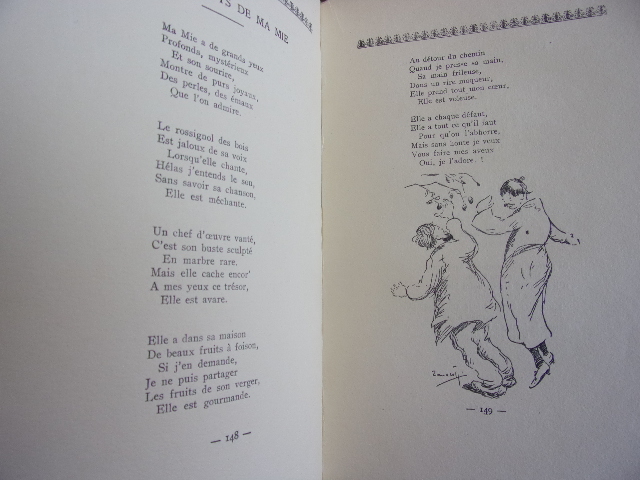 S DE MA MIE
Ma Mie a de grands yeux
Profonds, mystérieux
Et son sourire,
Montre de purs joyaux,
Des perles, des émaux
Que l'on admire.
Le rossignol des bois
Est jaloux de sa voix
Lorsqu'elle chante,
Hélas j'entends le son,
Sans savoir sa chanson,
Elle est méchante.
Un chef d'œuvre vanté,
C'est son buste sculpté
En marbre rare.
Mais elle cache encor'
A mes yeux ce trésor,
Elle est avare.
Elle a dans sa maison
De beaux fruits à foison,
Si j'en demande,
Je ne puis partager
Les fruits de son verger,
Elle est gourmande.
— 148 —
Au détour du chemin
Quand je presse sa main,
Sa main frileuse,
Dans un rire moqueur,
Elle prend tout mon cœur,
Elle est voleuse.
Elle a chaque défaut,
Elle a tout ce qu'il faut
Pour qu'on l'abhorre,
Mais sans honte je veux
Vous faire mes aveux
Oui, je l'adore. !
— 149 —